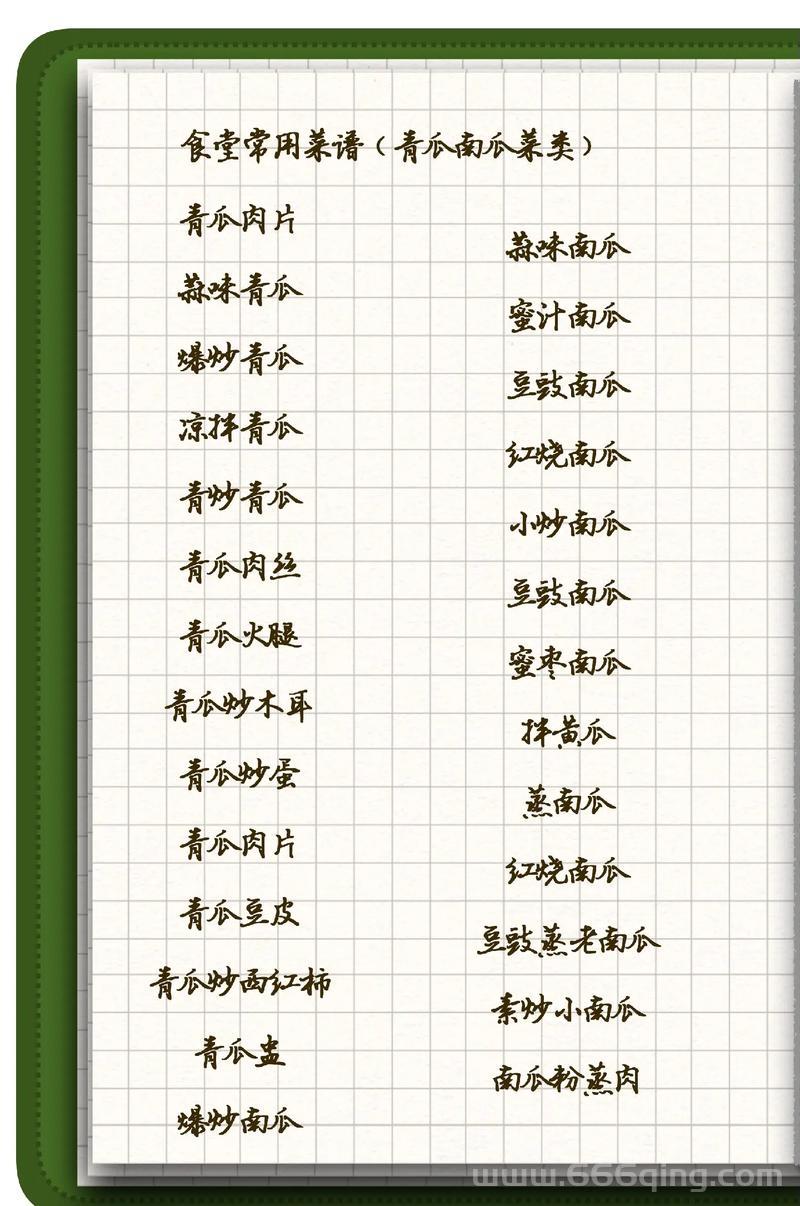 食堂常用菜谱（青瓜南瓜菜类）
青瓜肉片
蒜味青瓜
爆炒青瓜
凉拌青瓜
青炒青瓜
青瓜肉丝
青瓜火腿
青瓜炒木耳
青瓜炒蛋
青瓜肉片
青瓜豆皮
青瓜炒西红柿
青瓜盅
爆炒南瓜
蒜味南瓜
蜜汁南瓜
豆豉南瓜
红烧南瓜
小炒南瓜
豆豉南瓜
蜜枣南瓜
拌黄瓜
蒸南瓜
红烧南瓜
豆豉蒸老南瓜
素炒小南瓜
南瓜粉蒸肉
www.666qing.com